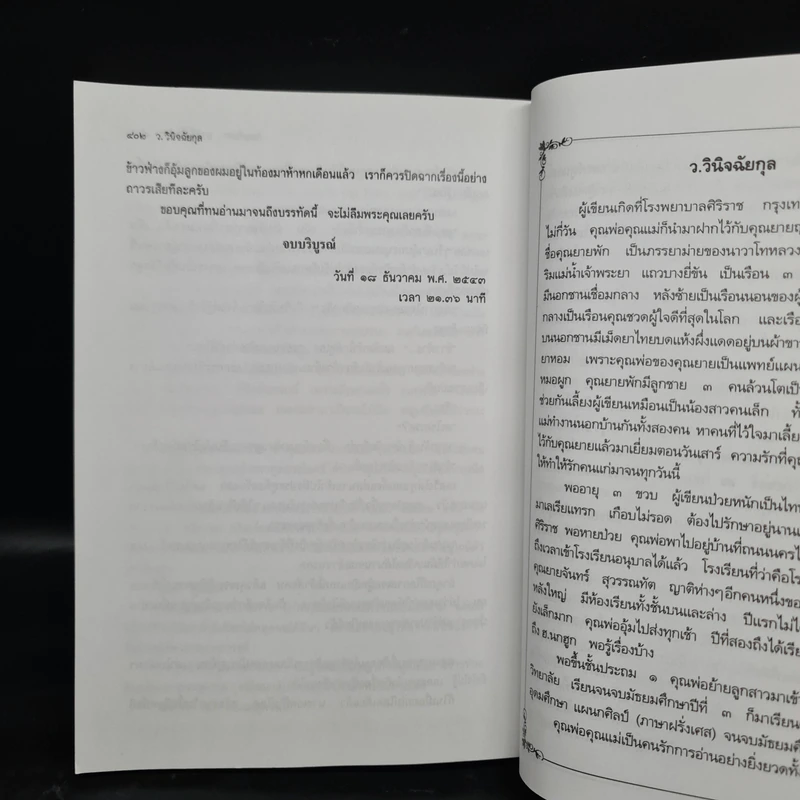 ๔๐๒ ว.วินิจฉัยกุล
ข้าวฟ่างก็อุ้มลูกของผมอยู่ในท้องมาห้าหกเดือนแล้ว เราก็ควรปิดฉากเรื่องนี้อย่าง
ถาวรเสียทีละครับ
ขอบคุณที่ทนอ่านมาจนถึงบรรทัดนี้ จะไม่ลืมพระคุณเลยครับ
จบบริบูรณ์
วันที่ ๑๘ ธันวาคม พ.ศ. ๒๕๔๓
เวลา ๒๑.๓๖ นาที
ว.วินิจฉัยกุล
ผู้เขียนเกิดที่โรงพยาบาลศิริราช กรุงเท
ไม่กี่วัน คุณพ่อคุณแม่ก็นำมาฝากไว้กับคุณยายญ
ชื่อคุณยายพัก เป็นภรรยาม่ายของนาวาโทหลวง
ริมแม่น้ำเจ้าพระยา แถวบางยี่ขัน เป็นเรือน ๓
มีนอกชานเชื่อมกลาง หลังซ้ายเป็นเรือนนอนของผู้
กลางเป็นเรือนคุณชวดผู้ใจดีที่สุดในโลก และเรือ
บนนอกชานมีเม็ดยาไทยบดแห้งผึ่งแดดอยู่บนผ้าขา
ยาหอม เพราะคุณพ่อของคุณยายเป็นแพทย์แผน
หมอผูก คุณยายพักมีลูกชาย ๓ คนล้วนโตเป็น
ช่วยกันเลี้ยงผู้เขียนเหมือนเป็นน้องสาวคนเล็ก ทั้
แม่ทำงานนอกบ้านกันทั้งสองคน หาคนที่ไว้ใจมาเลี้ย
ไว้กับคุณยายแล้วมาเยี่ยมตอนวันเสาร์ ความรักที่คุณ
ให้ทำให้รักคนแก่มาจนทุกวันนี้
พออายุ ๓ ขวบ ผู้เขียนป่วยหนักเป็นไทฟ
มาเลเรียแทรก เกือบไม่รอด ต้องไปรักษาอยู่นานแ
ศิริราช พอหายป่วย คุณพ่อพาไปอยู่บ้านที่ถนนนครไ
ถึงเวลาเข้าโรงเรียนอนุบาลได้แล้ว โรงเรียนที่ว่าคือโร
คุณยายจันทร์ สุวรรณทัต ญาติห่างๆอีกคนหนึ่งขอ
หลังใหญ่ มีห้องเรียนทั้งชั้นบนและล่าง ปีแรกไม่ไ
ยังเล็กมาก คุณพ่ออุ้มไปส่งทุกเช้า ปีที่สองถึงได้เรีย
ถึง ฮ.นกฮูก พอรู้เรื่องบ้าง
พอขึ้นชั้นประถม ๑ คุณพ่อย้ายลูกสาวมาเข้า
วิทยาลัย เรียนจนจบมัธยมศึกษาปีที่ ๓ ก็มาเรียน
อุดมศึกษา แผนกศิลป์ (ภาษาฝรั่งเศส) จนจบมัธยมศึ
คุณพ่อคุณแม่เป็นคนรักการอ่านอย่างยิ่งยวดทั้ง